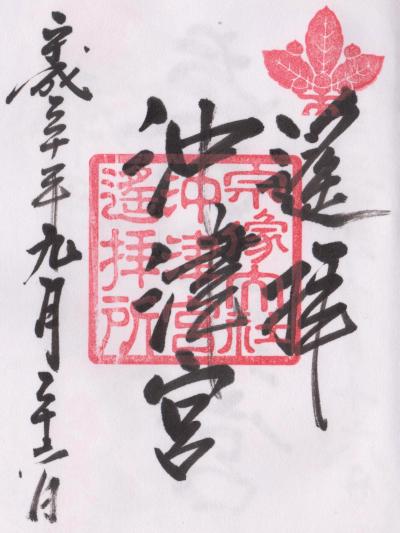 遥拝
沖津宮
平成三十年九月二十六日
宗像大社
沖津宮
遙拝所